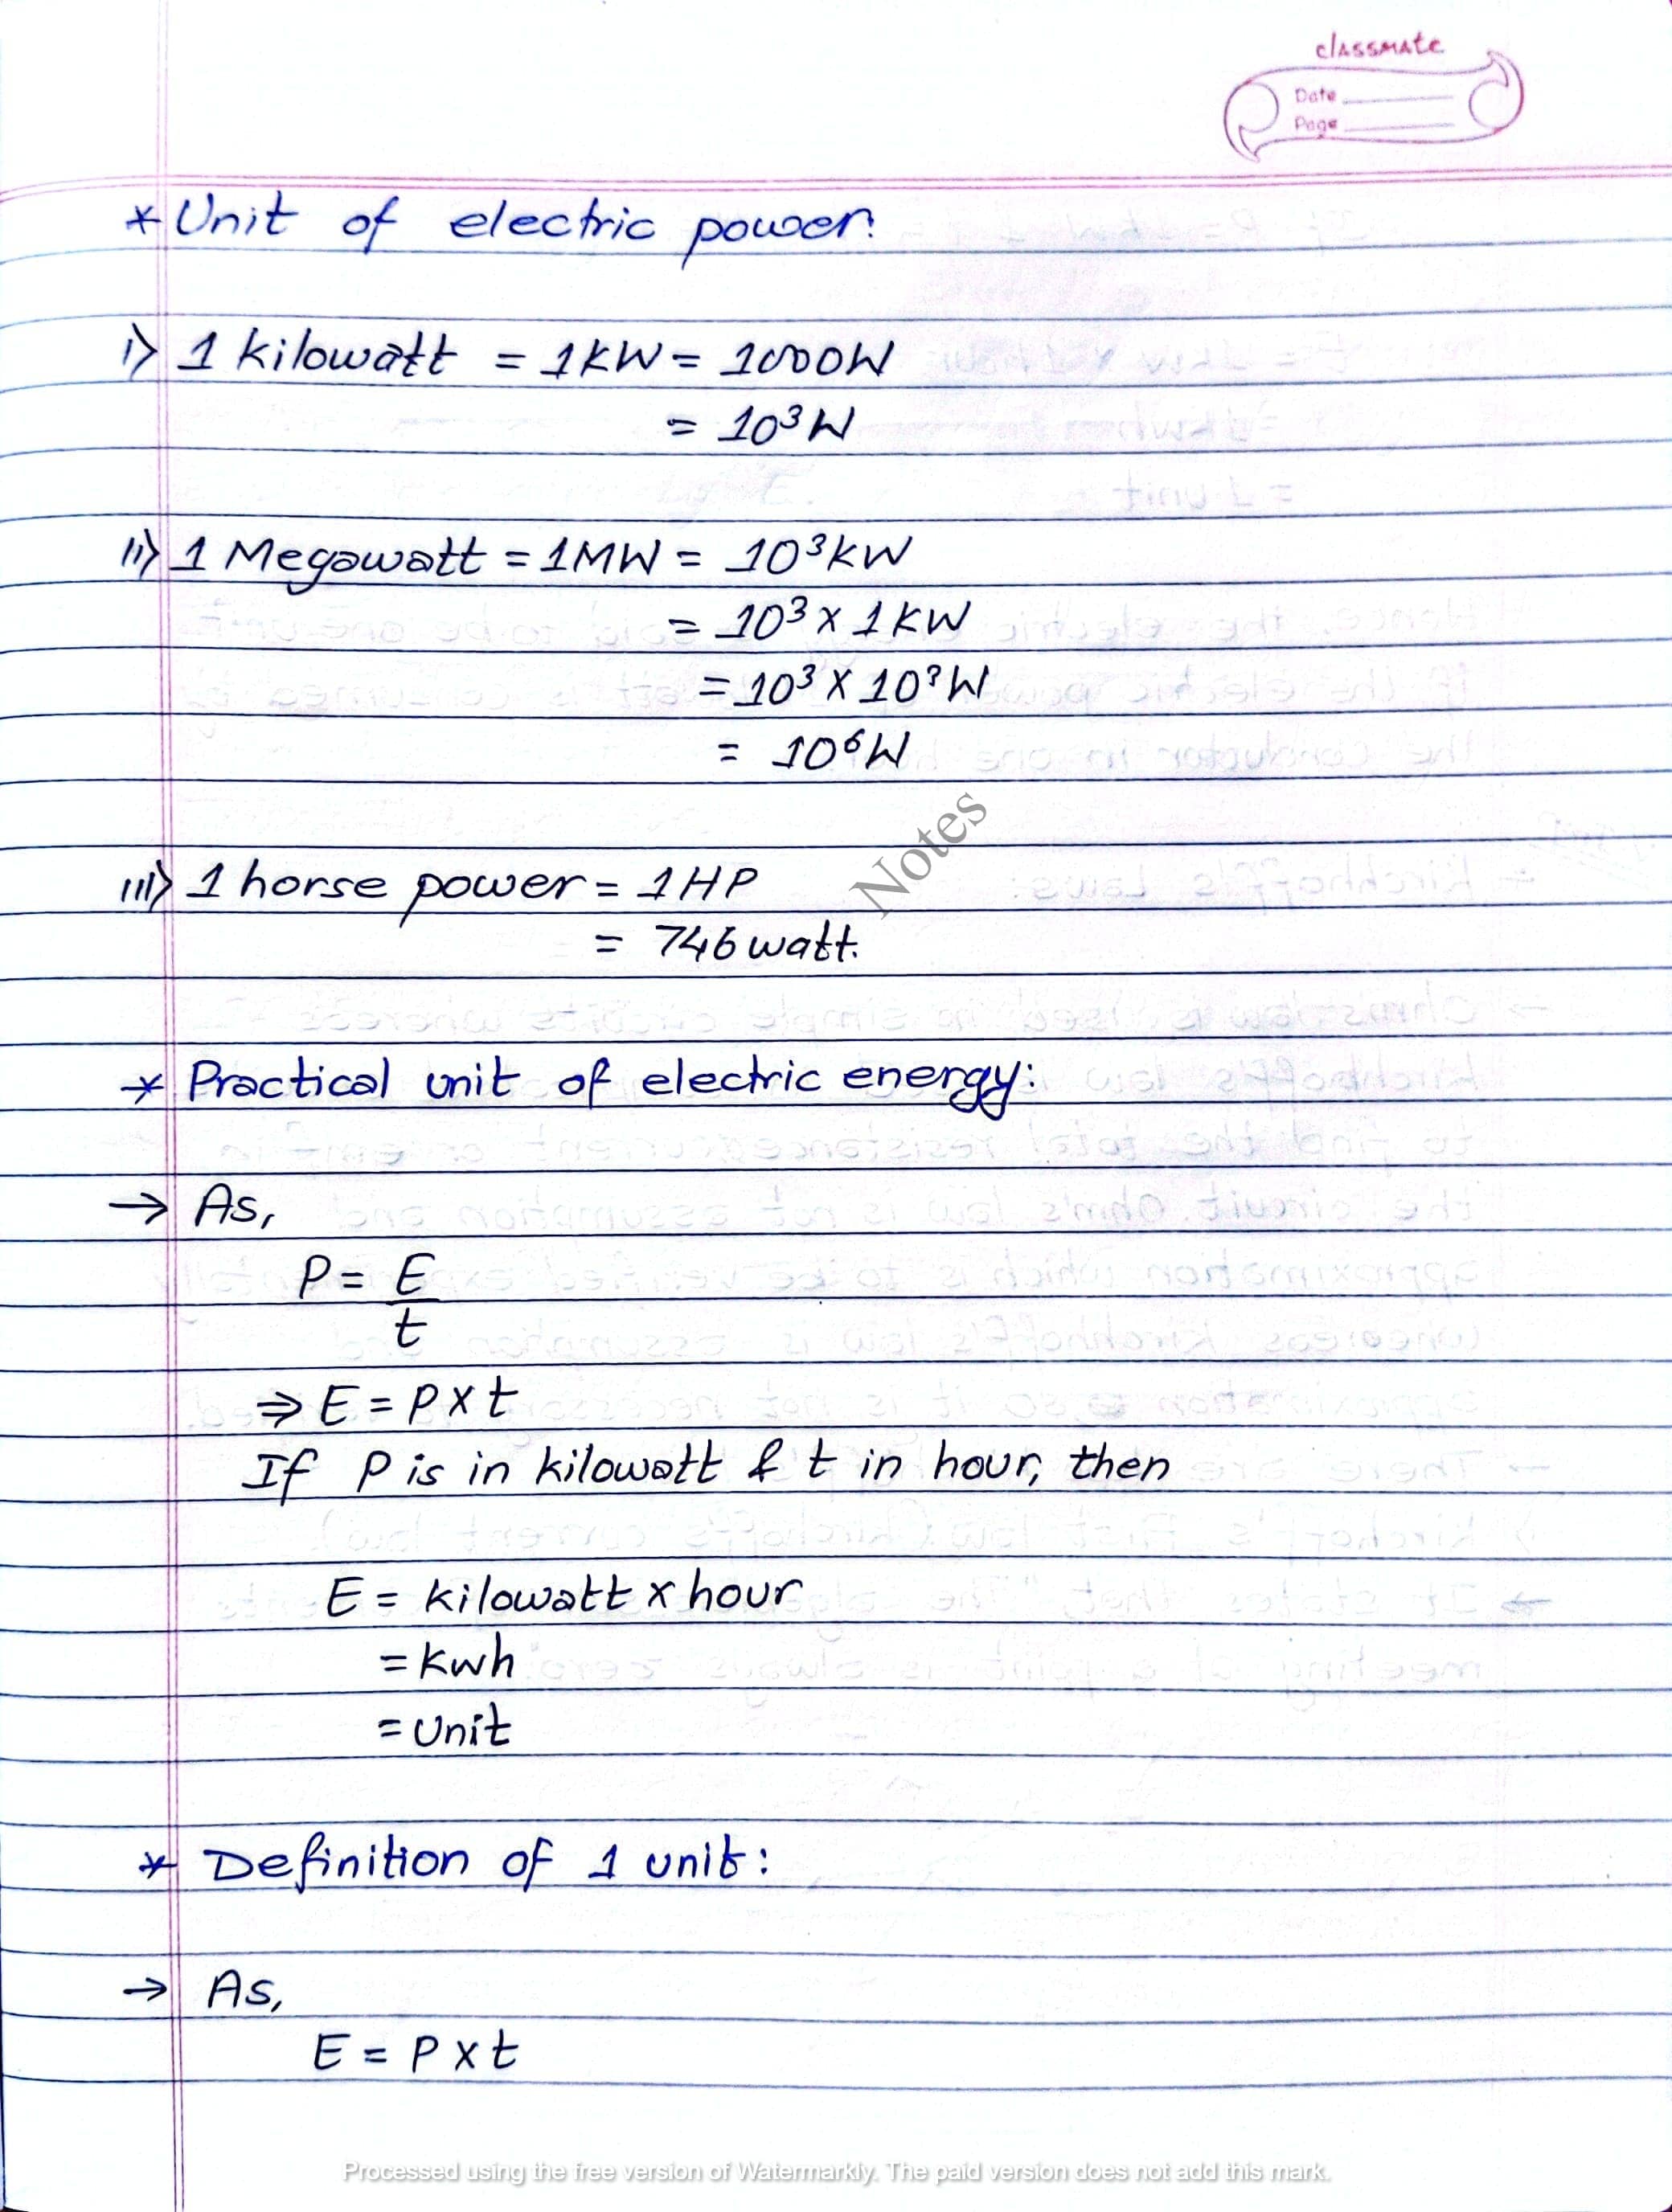 classmate
Date
Page
* Unit of electric power:
i) 1 kilowatt = 1KW = 1000W
= 10³W
ii) 1 Megawatt = 1MW = 10³KW
= 10³ x 1KW
= 10³ x 10³W
= 10⁶W
Notes
iii) 1 horse power = 1HP
= 746 watt.
* Practical unit of electric energy:
→ As,
P = E
t
⇒ E = P x t
If P is in kilowatt & t in hour, then
E = kilowatt x hour
= Kwh
= Unit
* Definition of 1 unit:
→ As,
E = P x t
Processed using the free version of Watermarkly. The paid version does not add this mark.